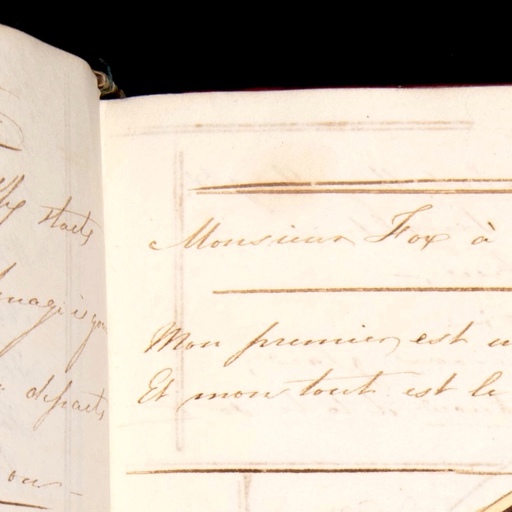 starts
departs
on
Monsieur Fox à
Mon premier est u
Et mon tout est le